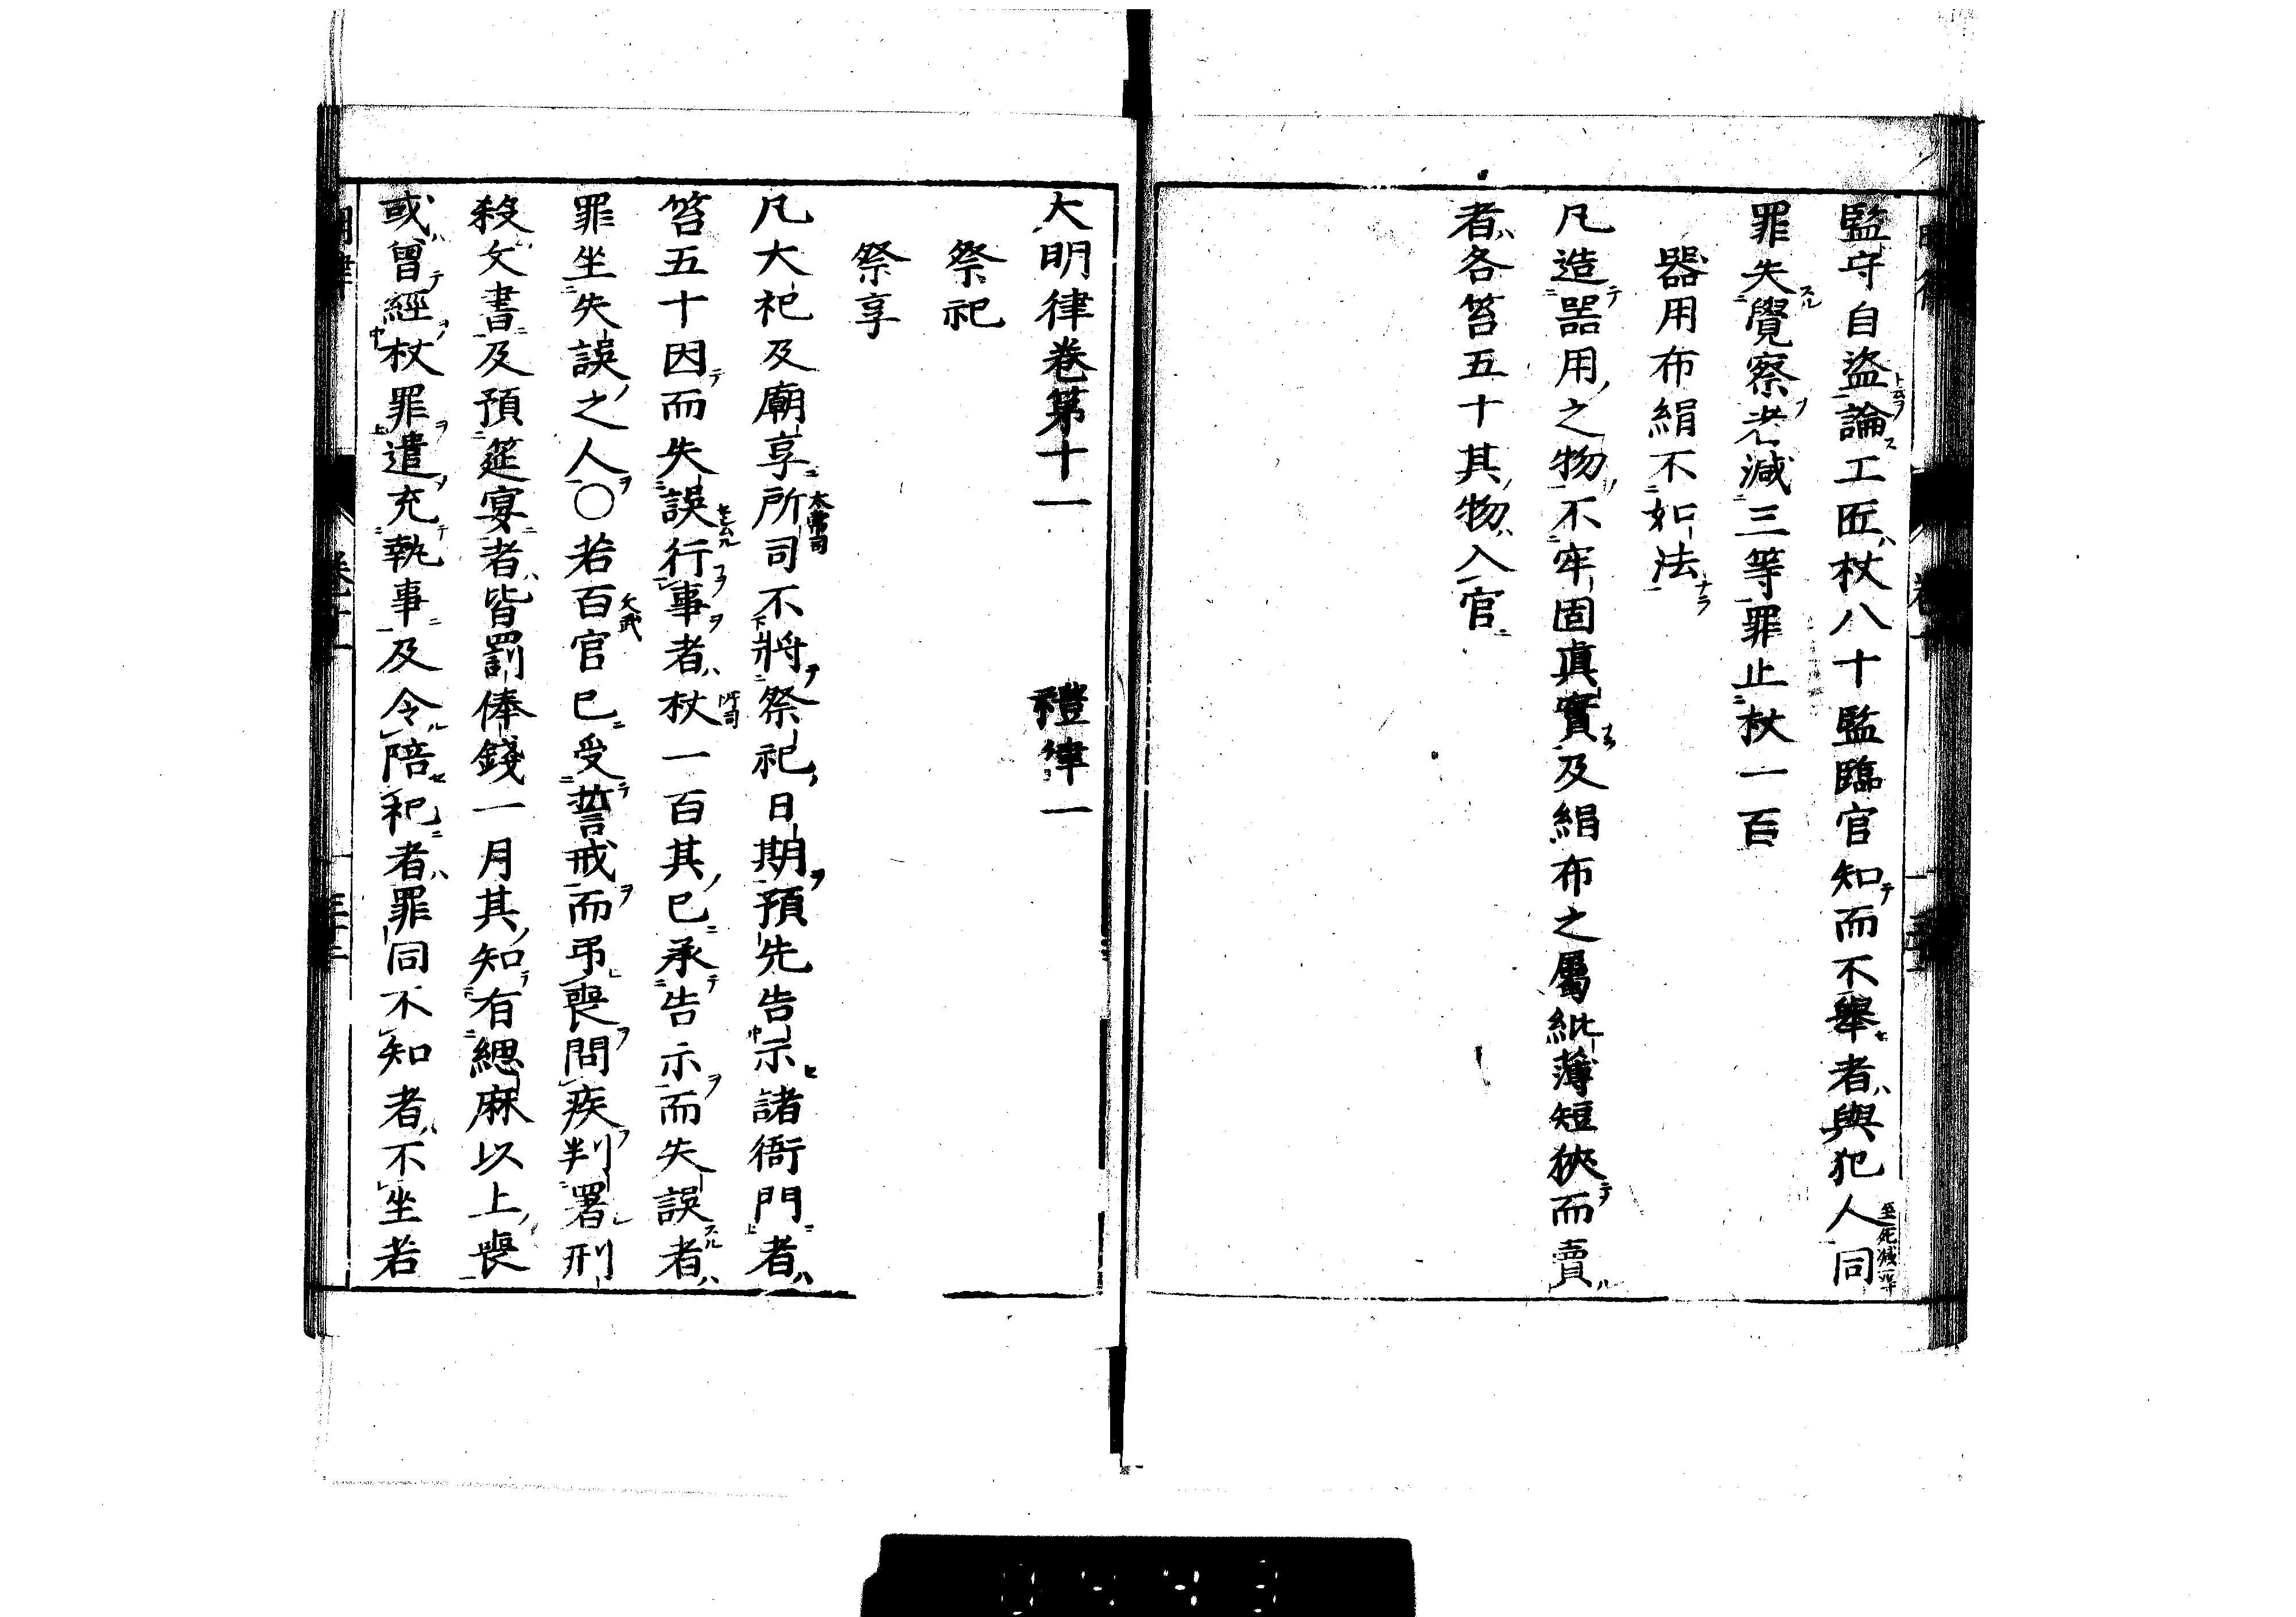 監守自盜論工匠杖八十監臨官知而不舉者與犯人同
至死減一等
罪失覺察者減三等罪止杖一百
器用布絹不如法
凡造器用之物不牢固真實及絹布之屬紕薄短狹而賣
者各笞五十其物入官
大明律卷第十一　禮律一
祭祀
祭享
凡大祀及廟享所司不將祭祀日期預先告示諸衙門者
太常司
笞五十因而失誤行事者杖一百其已承告示而失誤者
所司
罪坐失誤之人○若百官已受誓戒而弔喪問疾判署刑
文武
殺文書及預筵宴者皆罰俸錢一月其知有緦麻以上喪
或曾經杖罪遣充執事及令陪祀者罪同不知者不坐若